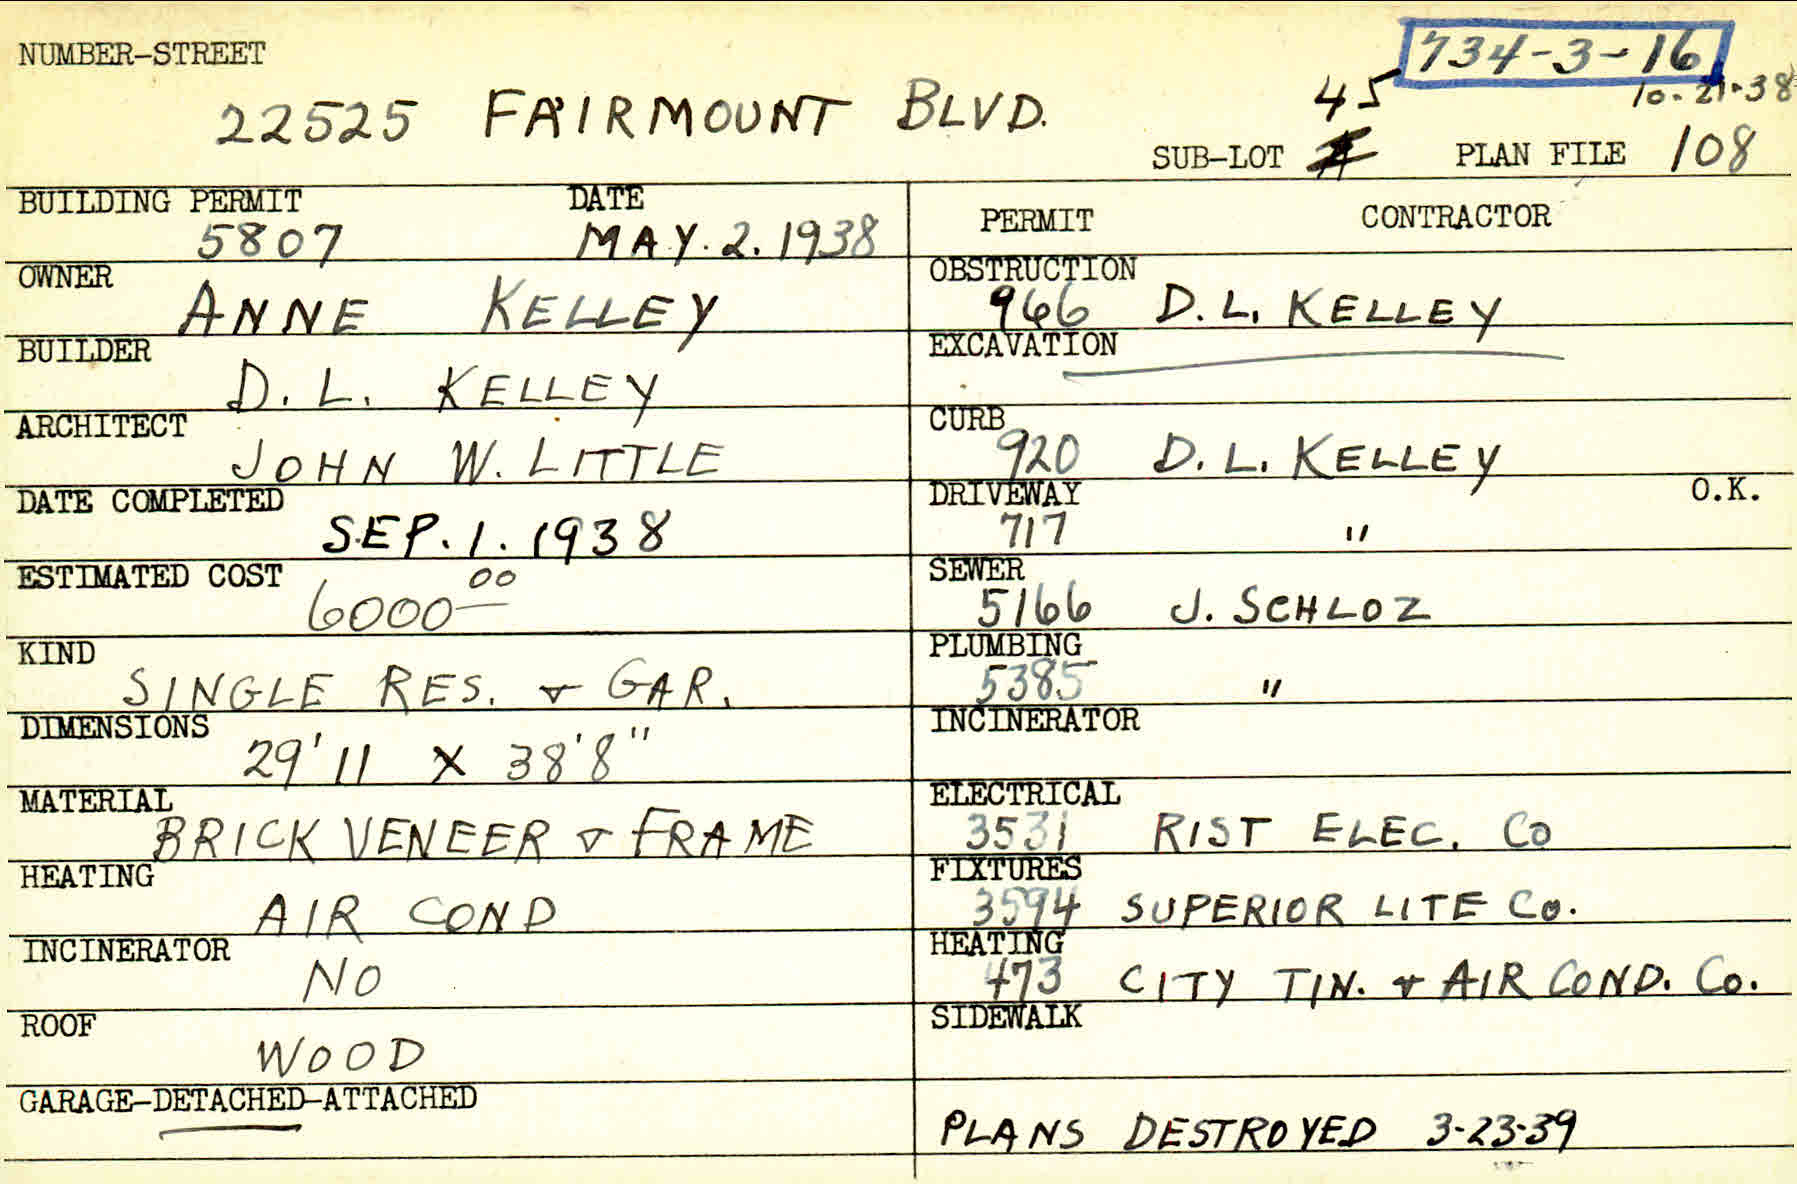 NUMBER-STREET
734-3-16
22525 FAIRMOUNT BLVD.
45
10.21.38
SUB-LOT
PLAN FILE 108
BUILDING PERMIT DATE
5807 MAY. 2. 1938
OWNER
ANNE KELLEY
BUILDER
D. L. KELLEY
ARCHITECT
JOHN W. LITTLE
DATE COMPLETED
SEP. 1. 1938
ESTIMATED COST
6000 00
KIND
SINGLE RES. & GAR.
DIMENSIONS
29'11 X 38'8"
MATERIAL
BRICK VENEER & FRAME
HEATING
AIR COND
INCINERATOR
NO
ROOF
WOOD
GARAGE-DETACHED-ATTACHED
PERMIT CONTRACTOR
OBSTRUCTION
966 D. L. KELLEY
EXCAVATION
CURB
920 D. L. KELLEY
DRIVEWAY O.K.
717 "
SEWER
5166 J. SCHLOZ
PLUMBING
5385 "
INCINERATOR
ELECTRICAL
3531 RIST ELEC. CO
FIXTURES
3594 SUPERIOR LITE CO.
HEATING
473 CITY TIN. & AIR COND. CO.
SIDEWALK
PLANS DESTROYED 3-23-39